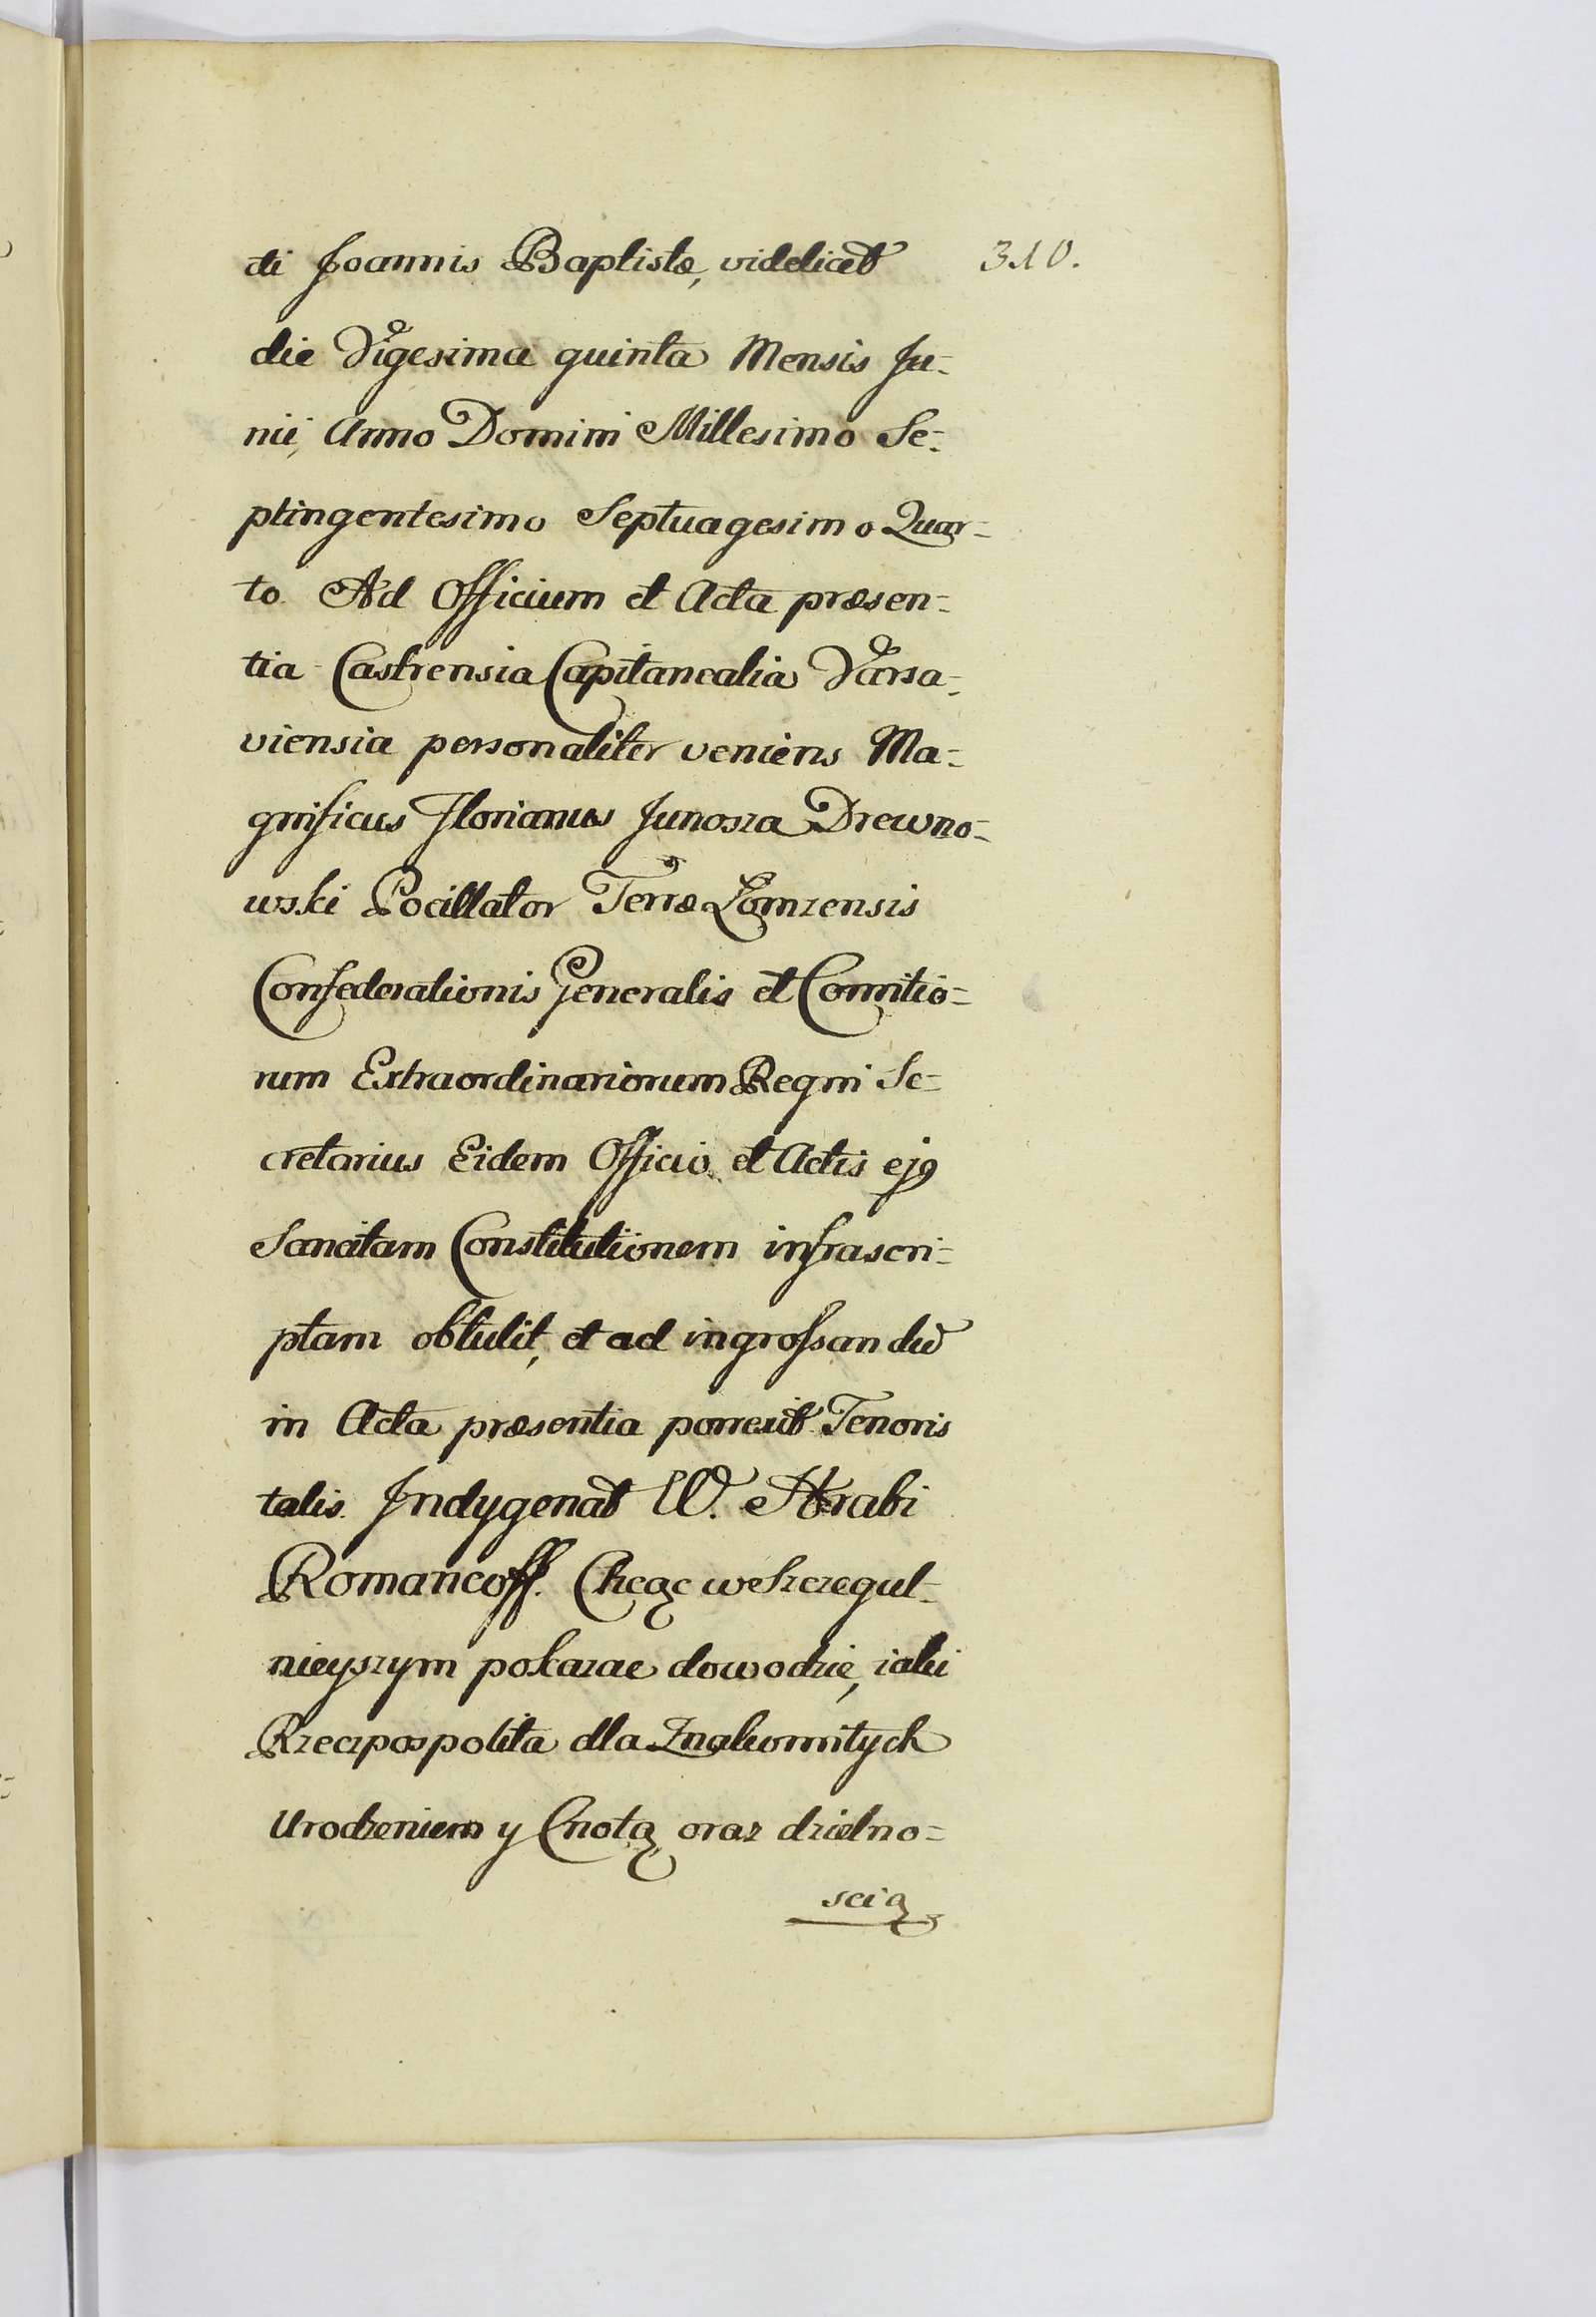 cti Joannis Baptistæ, videlicet 310.
die Vigesima quinta Mensis Ju-
nii, Anno Domini Millesimo Se-
ptingentesimo Septuagesimo Quar-
to. Ad Officium et Acta præsen-
tia Castrensia Capitanealia Varsa-
viensia personaliter veniens Ma-
gnificus Florianus Junosza Drewno-
wski Pocillator Terræ Łomzensis
Confederationis Generalis et Comitio-
rum Extraordinariorum Regni Se-
cretarius Eidem Officio et Actis ejꝰ
Sancitam Constitutionem infrascri-
ptam obtulit, et ad ingrossandũ
in Acta præsentia porrexit Tenoris
talis. Indygenat W. Hrabi
Romancoff. Chcąc weszczegul-
nieyszym pokazac dowodzie, iaki
Rzeczpospolita dla Znakomitych
Urodzeniem y Cnotą oraz dzielno-
scią